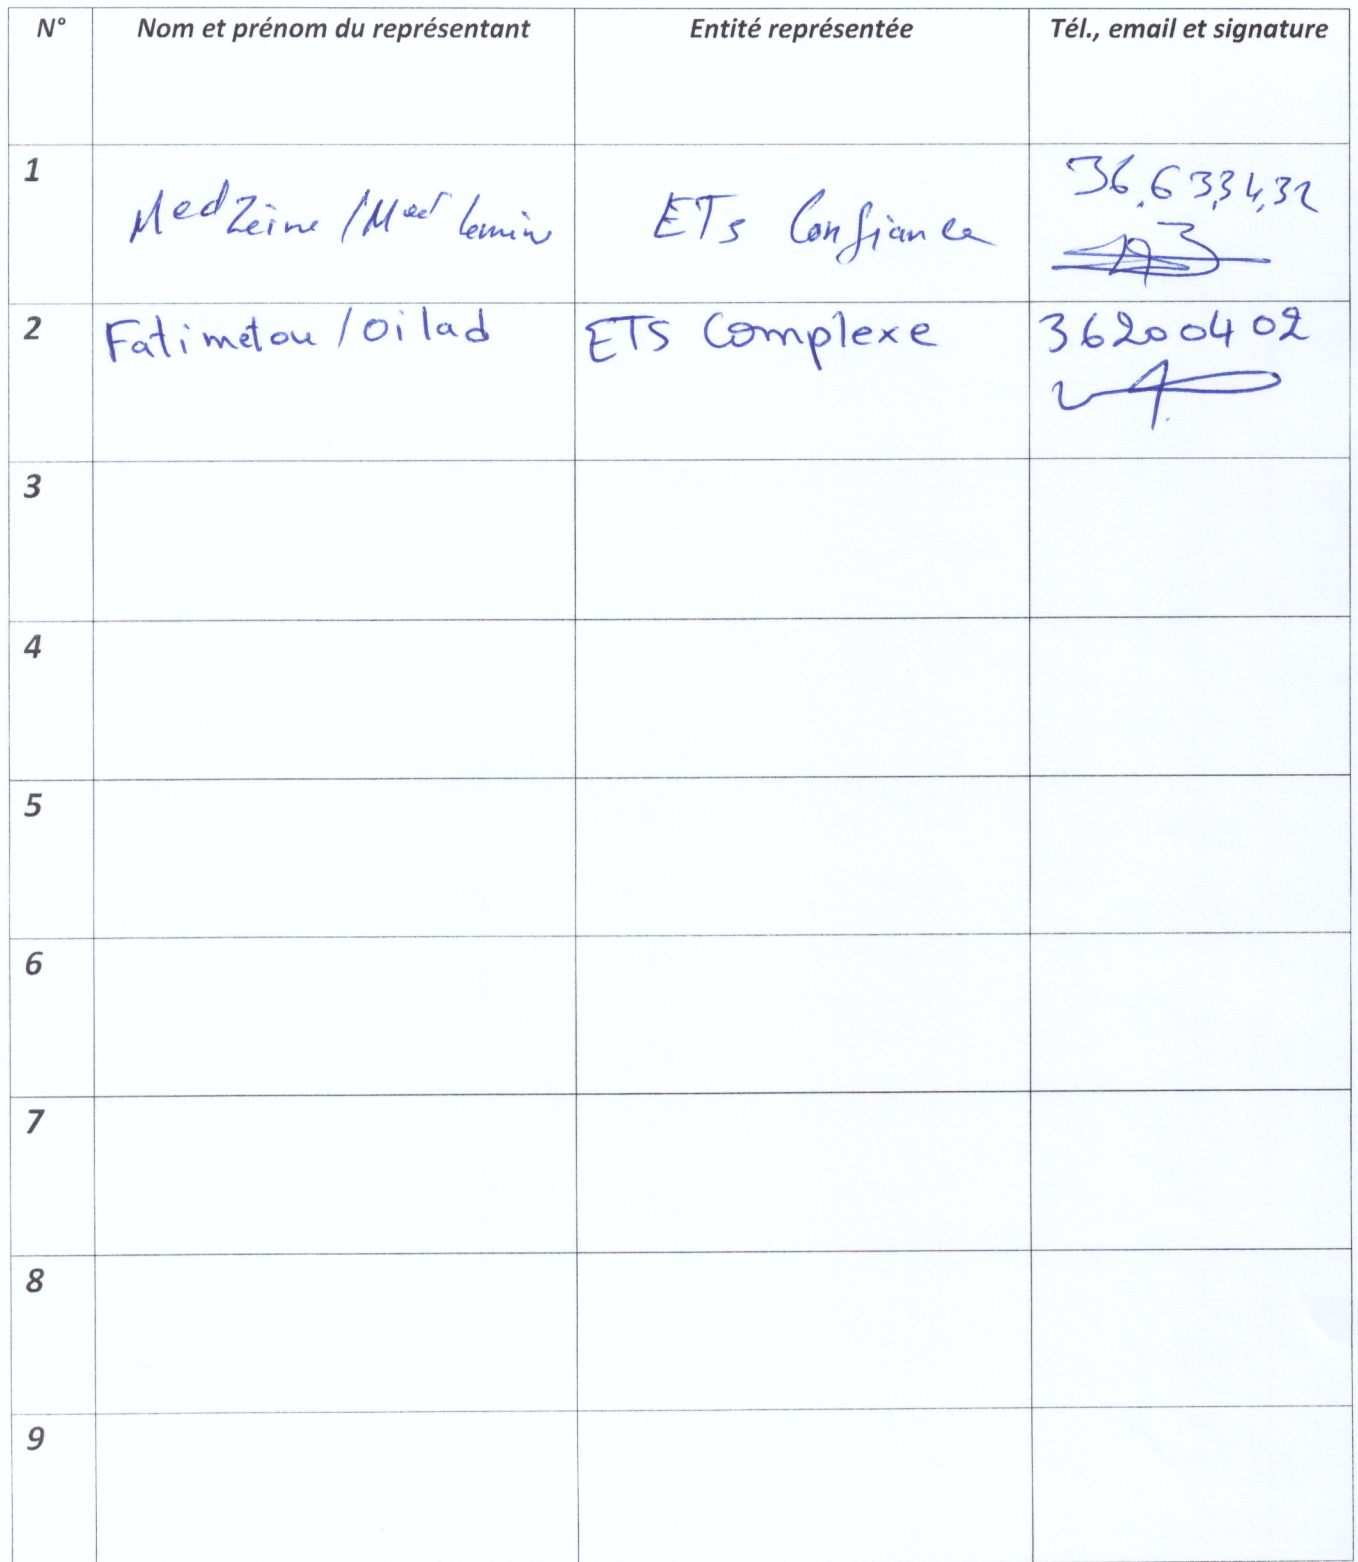 N° Nom et prénom du représentant Entité représentée Tél., email et signature
1 Med Zeine / Med Lemine ETs Confiance 36.63,34,32
2 Fatimetou / oilad ETS Complexe 36200402
3
4
5
6
7
8
9